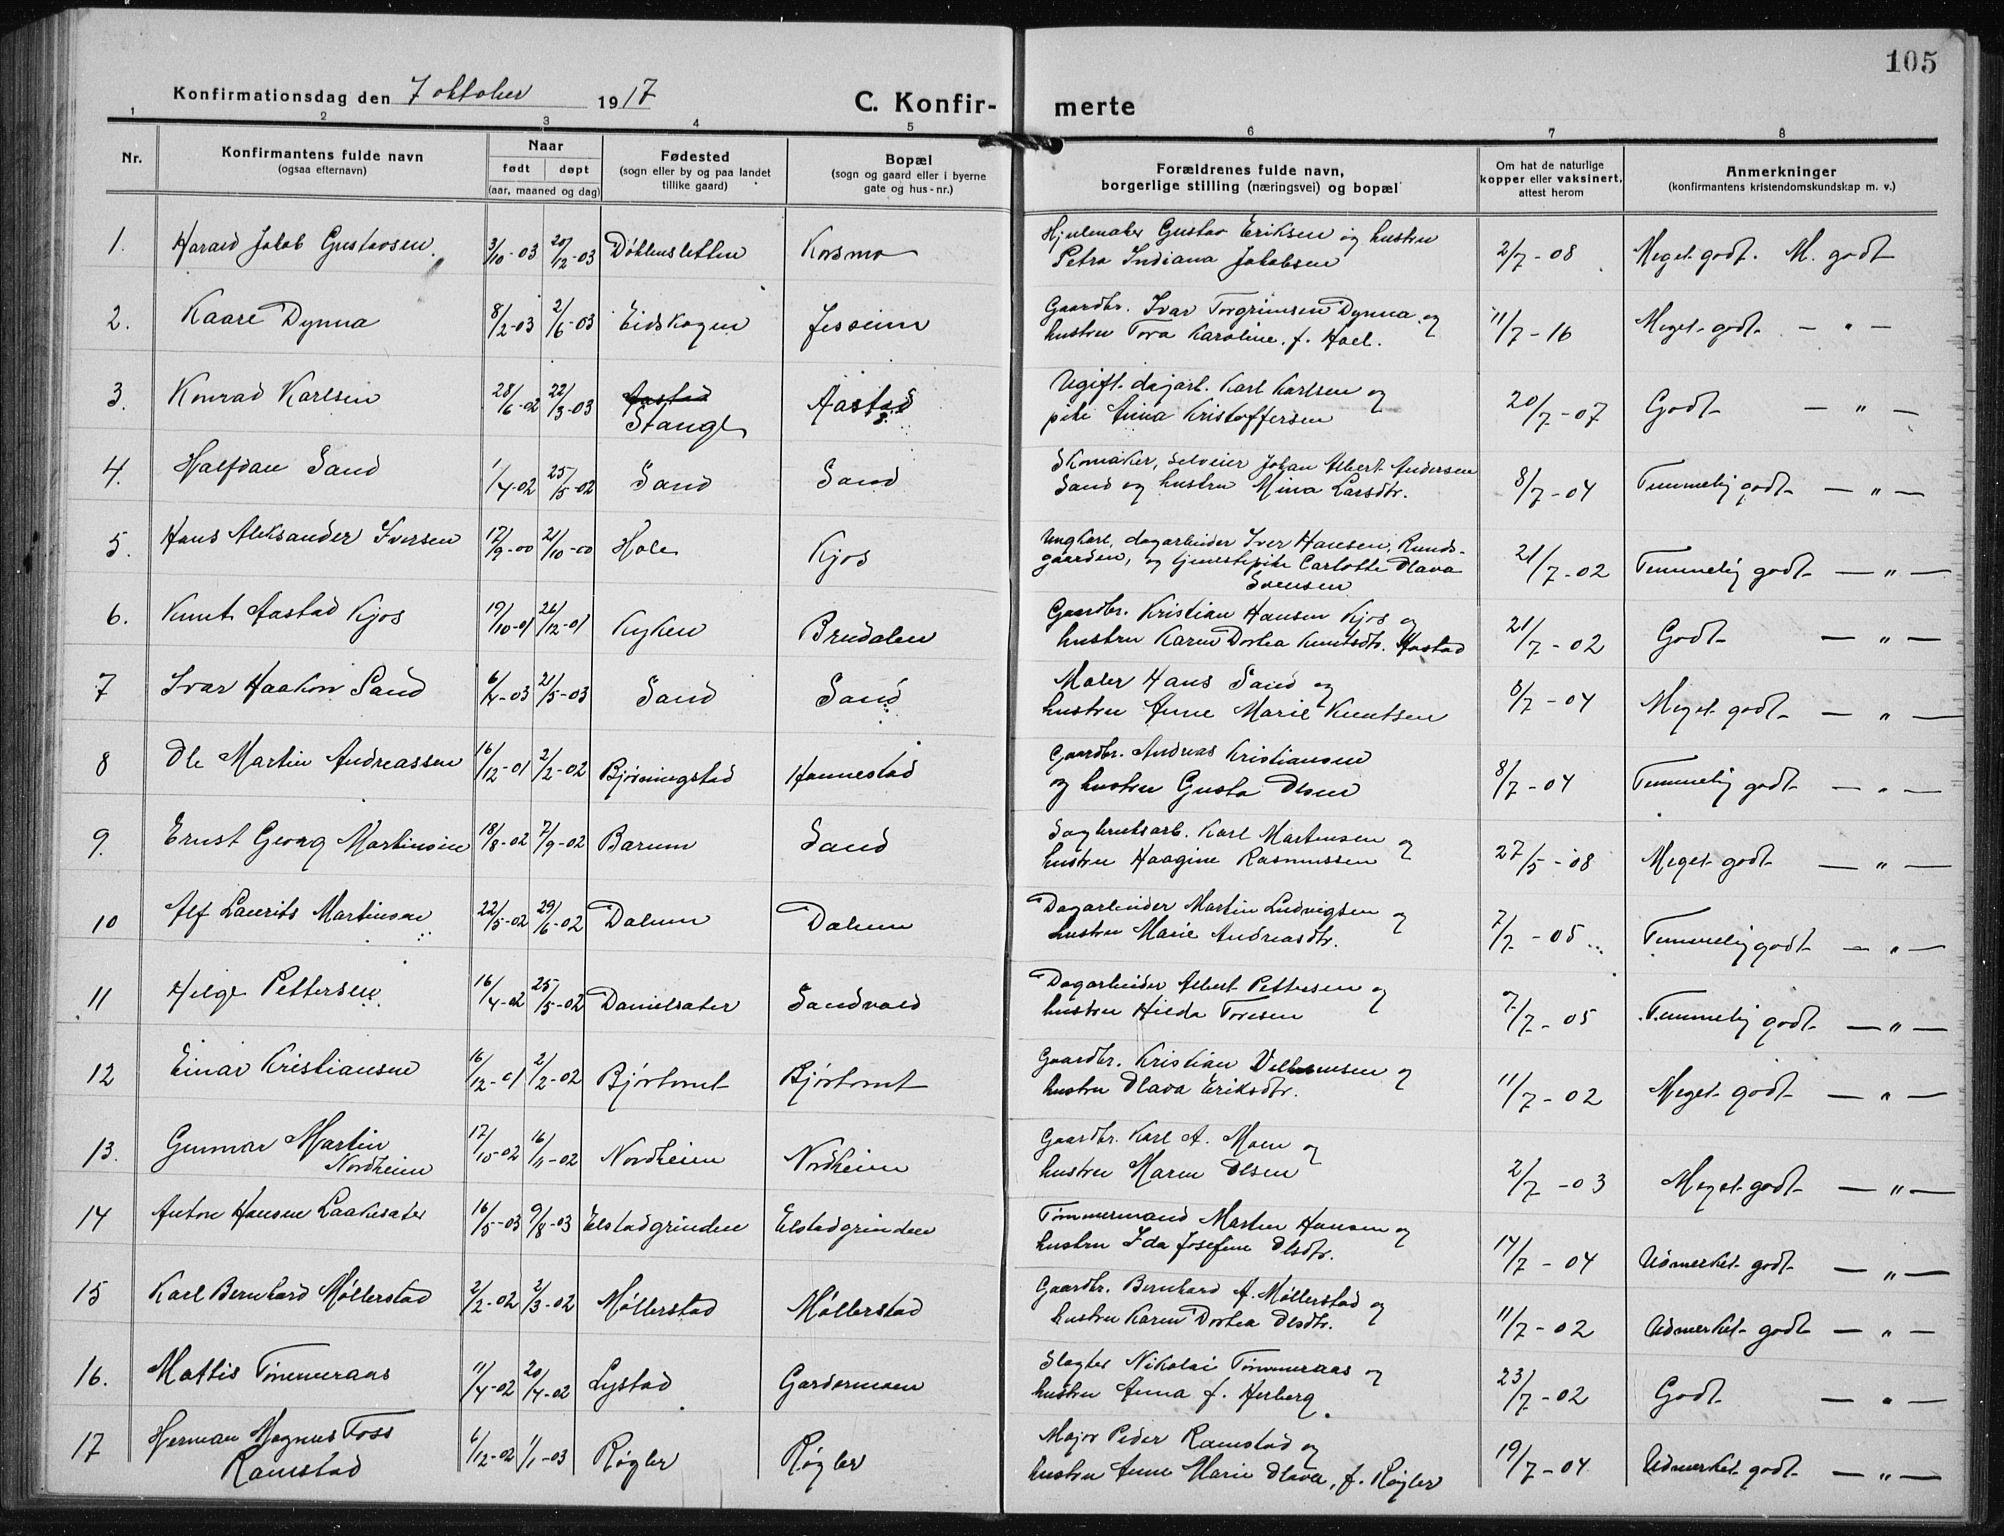 105
Konfirmationsdag den 7 oktober 1917 C. Konfir- merte
1 2 3 4 5 6 7 8
Nr.
Konfirmantens fulde navn
(ogsaa efternavn)
Naar
født døpt
(aar, maaned og dag)
Fødested
(sogn eller by og paa landet
tillike gaard)
Bopæl
(sogn og gaard eller i byerne
gate og hus-nr.)
Forældrenes fulde navn,
borgerlige stilling (næringsvei) og bopæl
Om hat de naturlige
kopper eller vaksinert,
attest herom
Anmerkninger
(konfirmantens kristendomskundskap m. v.)
1. Harald Jakob Gustavsen 3/10-03 20/12-03 Døhlensletten Kosmo Hjulmaker Gustav Eriksen og hustru
Petra Indiana Jakobsen 2/7-08 Meget godt. M. godt
2. Kaare Dynna 8/2-03 2/6-03 Eidskogen Jesseim Gaardbr. Ivar Torgrimsen Dynna og
hustru Tora Karoline, f. Hoel. 11/7-16 Meget godt — " —
3. Konrad Karlsen 28/6-02 22/3-03 Aastad
Stange Aastad Ugift dagarb. Karl Karlsen og
pike Anna Kristoffersen 20/7-07 Godt — " —
4. Halfdan Sand 1/4-02 25/5-02 Sand Sand Skomaker, selveier Johan Albert Andersen
Sand og hustru Mina Larsdtr. 8/7-04 Temmelig godt — " —
5. Hans Aleksander Iversen 17/9-00 21/10-00 Hole Kjos Ungkarl, dagarbeider Iver Hansen, Runds-
gaarden, og tjenestepike Carlotte Olava
Svensen 21/7-02 Temmelig godt — " —
6. Knut Aastad Kjos 19/10-01 26/12-01 Kyken Brudalen Gaardbr. Kristian Hansen Kjos og
hustru Karen Dorthea Knutsdtr. Aastad 21/7-02 Godt — " —
7 Ivar Haakon Sand 6/4-03 21/5-03 Sand Sand Maler Hans Sand og
hustru Anne Marie Knutsen 8/7-04 Meget godt — " —
8 Ole Martin Andreassen 16/12-01 2/2-02 Bjørningstad Hannestad Gaardbr. Andreas Kristiansen
og hustru Gusta Olsen 8/7-04 Temmelig godt — " —
9. Ernst Georg Martinsen 18/8-02 7/9-02 Barum Sand Sagbruksarb. Karl Martinsen og
hustru Haagine Rasmussen 27/5-08 Meget godt — " —
10 Alf Laurits Martinsen 22/5-02 29/6-02 Dalum Dalum Dagarbeider Martin Ludvigsen og
hustru Marie Andreasdtr. 7/7-05 Temmelig godt — " —
11 Helge Pettersen 16/4-02 25/5-02 Danielsæter Sandvold Dagarbeider Albert Pettersen og
hustru Hilda Toresen 7/7-05 Temmelig godt — " —
12 Einar Kristiansen 16/12-01 2/2-02 Bjørtomt Bjørtomt Gaardbr. Kristian Vilhemsen og
hustru Olava Eriksdtr. 11/7-02 Meget godt — " —
13. Gunnar Martin
Nordheim 17/10-02 16/11-02 Nordheim Nordheim Gaardbr. Karl A. Moen og
hustru Maren Olsen 2/7-03 Meget godt — " —
14 Anton Hansen Laakesæter 16/5-03 9/8-03 Elstadgrinden Elstadgrinden Tømmermand Martin Hansen og
hustru Ida Josefine Olsdtr. 14/7-04 Udmerket godt — " —
15 Karl Bernhard Møllerstad 2/2-02 2/3-02 Møllerstad Møllerstad Gaardbr. Bernhard A. Møllerstad og
hustru Karen Dorthea Olsdtr. 11/7-02 Udmerket godt — " —
16. Mattis Tømmeraas 11/4-02 20/4-02 Lystad Gardermoen Slagter Nikolai Tømmeraas og
hustru Anna f. Herberg. 23/7-02 Godt — " —
17 Herman Magnus Foss
Ramstad 6/12-02 1/1-03 Røgler Røgler Major Peder Ramstad og
hustru Anne Marie Olava, f. Røgler 19/7-04 Udmerket godt — " —